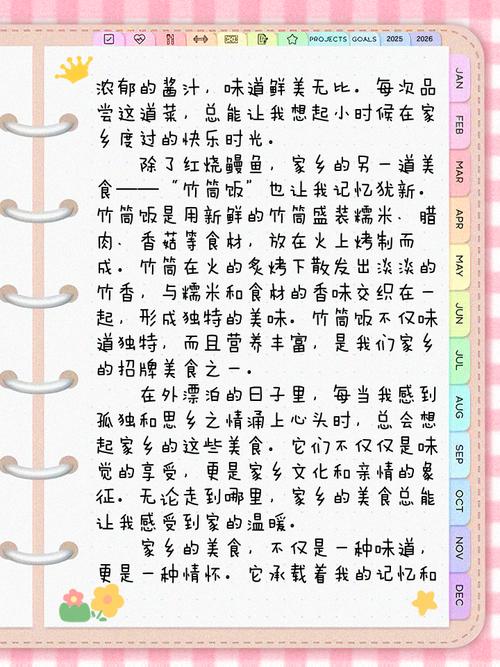 PROJECTS GOALS 2025 2026
浓郁的酱汁，味道鲜美无比。每次品
尝这道菜，总能让我想起小时候在家
乡度过的快乐时光。
除了红烧鳗鱼，家乡的另一道美
食——“竹筒饭”也让我记忆犹新。
竹筒饭是用新鲜的竹筒盛装糯米、腊
肉、香菇等食材，放在火上烤制而
成。竹筒在火的炙烤下散发出淡淡的
竹香，与糯米和食材的香味交织在一
起，形成独特的美味。竹筒饭不仅味
道独特，而且营养丰富，是我们家乡
的招牌美食之一。
在外漂泊的日子里，每当我感到
孤独和思乡之情涌上心头时，总会想
起家乡的这些美食。它们不仅仅是味
觉的享受，更是家乡文化和亲情的象
征。无论走到哪里，家乡的美食总能
让我感受到家的温暖。
家乡的美食，不仅是一种味道，
更是一种情怀。它承载着我的记忆和
JAN
FEB
MAR
APR
MAY
JUN
JUL
AUG
SEP
OCT
NOV
DEC